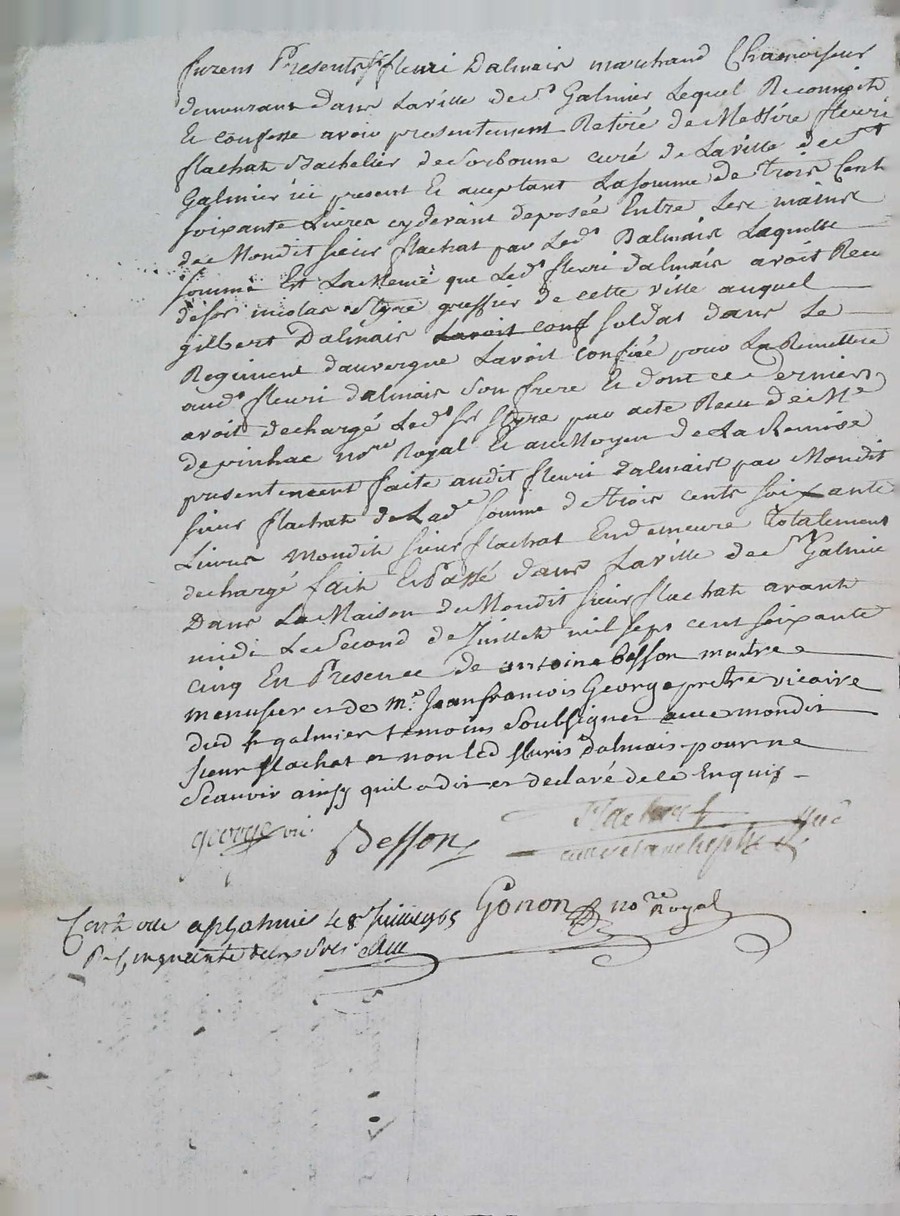 furent Presents Sr fleuri Dalmais marchand Chamoiseur
demeurant dans Laville de St Galmier Lequel Reconnoit
Et confesse avoir presentement Retiré de Messire fleuri
flachat Bachelier de Sorbonne curé de Laville de St
Galmier ici present Et acceptant La somme de trois Cent
soixante Livres cydevant deposée Entre Les mains
de Mondit sieur flachat par Led. Dalmais Laquelle
somme Est La Meme que Led. fleuri dalmais avoit Receu
de Sr nicolas Styre greffier de cette ville auquel
gilbert Dalmais Lavoit conf soldat dans Le
Regiment dauvergne Lavoit confiée pour La Remettre
aud. fleuri dalmais Son frere Et dont ce dernier
avoit dechargé Led. Sr Styre par acte Receu de Me
depinhac nore Royal Et au Moyen de La Remise
presentement faite audit fleuri dalmais par Mondit
sieur flachat de Lad. somme de trois cents soixante
Livres Mondit sieur flachat En demeure totalement
dechargé fait Et Passé dans Laville de St Galmie
Dans La Maison de Mondit sieur flachat avant
midi Le Second de Juillet mil sept cent soixante
cinq En Presence de antoine besson maitre
menusier et de Mr. Jeanfrancois George pretre vicaire
dud St galmier temoins Soubsignes avec mondit
sieur flachat et non led fluris dalmais pour ne
Scauoir ainsy quil a dit et declaré de ce Enquis
george vic.
Besson
Flachat
Gonon nore Royal
a St Galmie le 8e Juillet 1765
cinquante deux sols